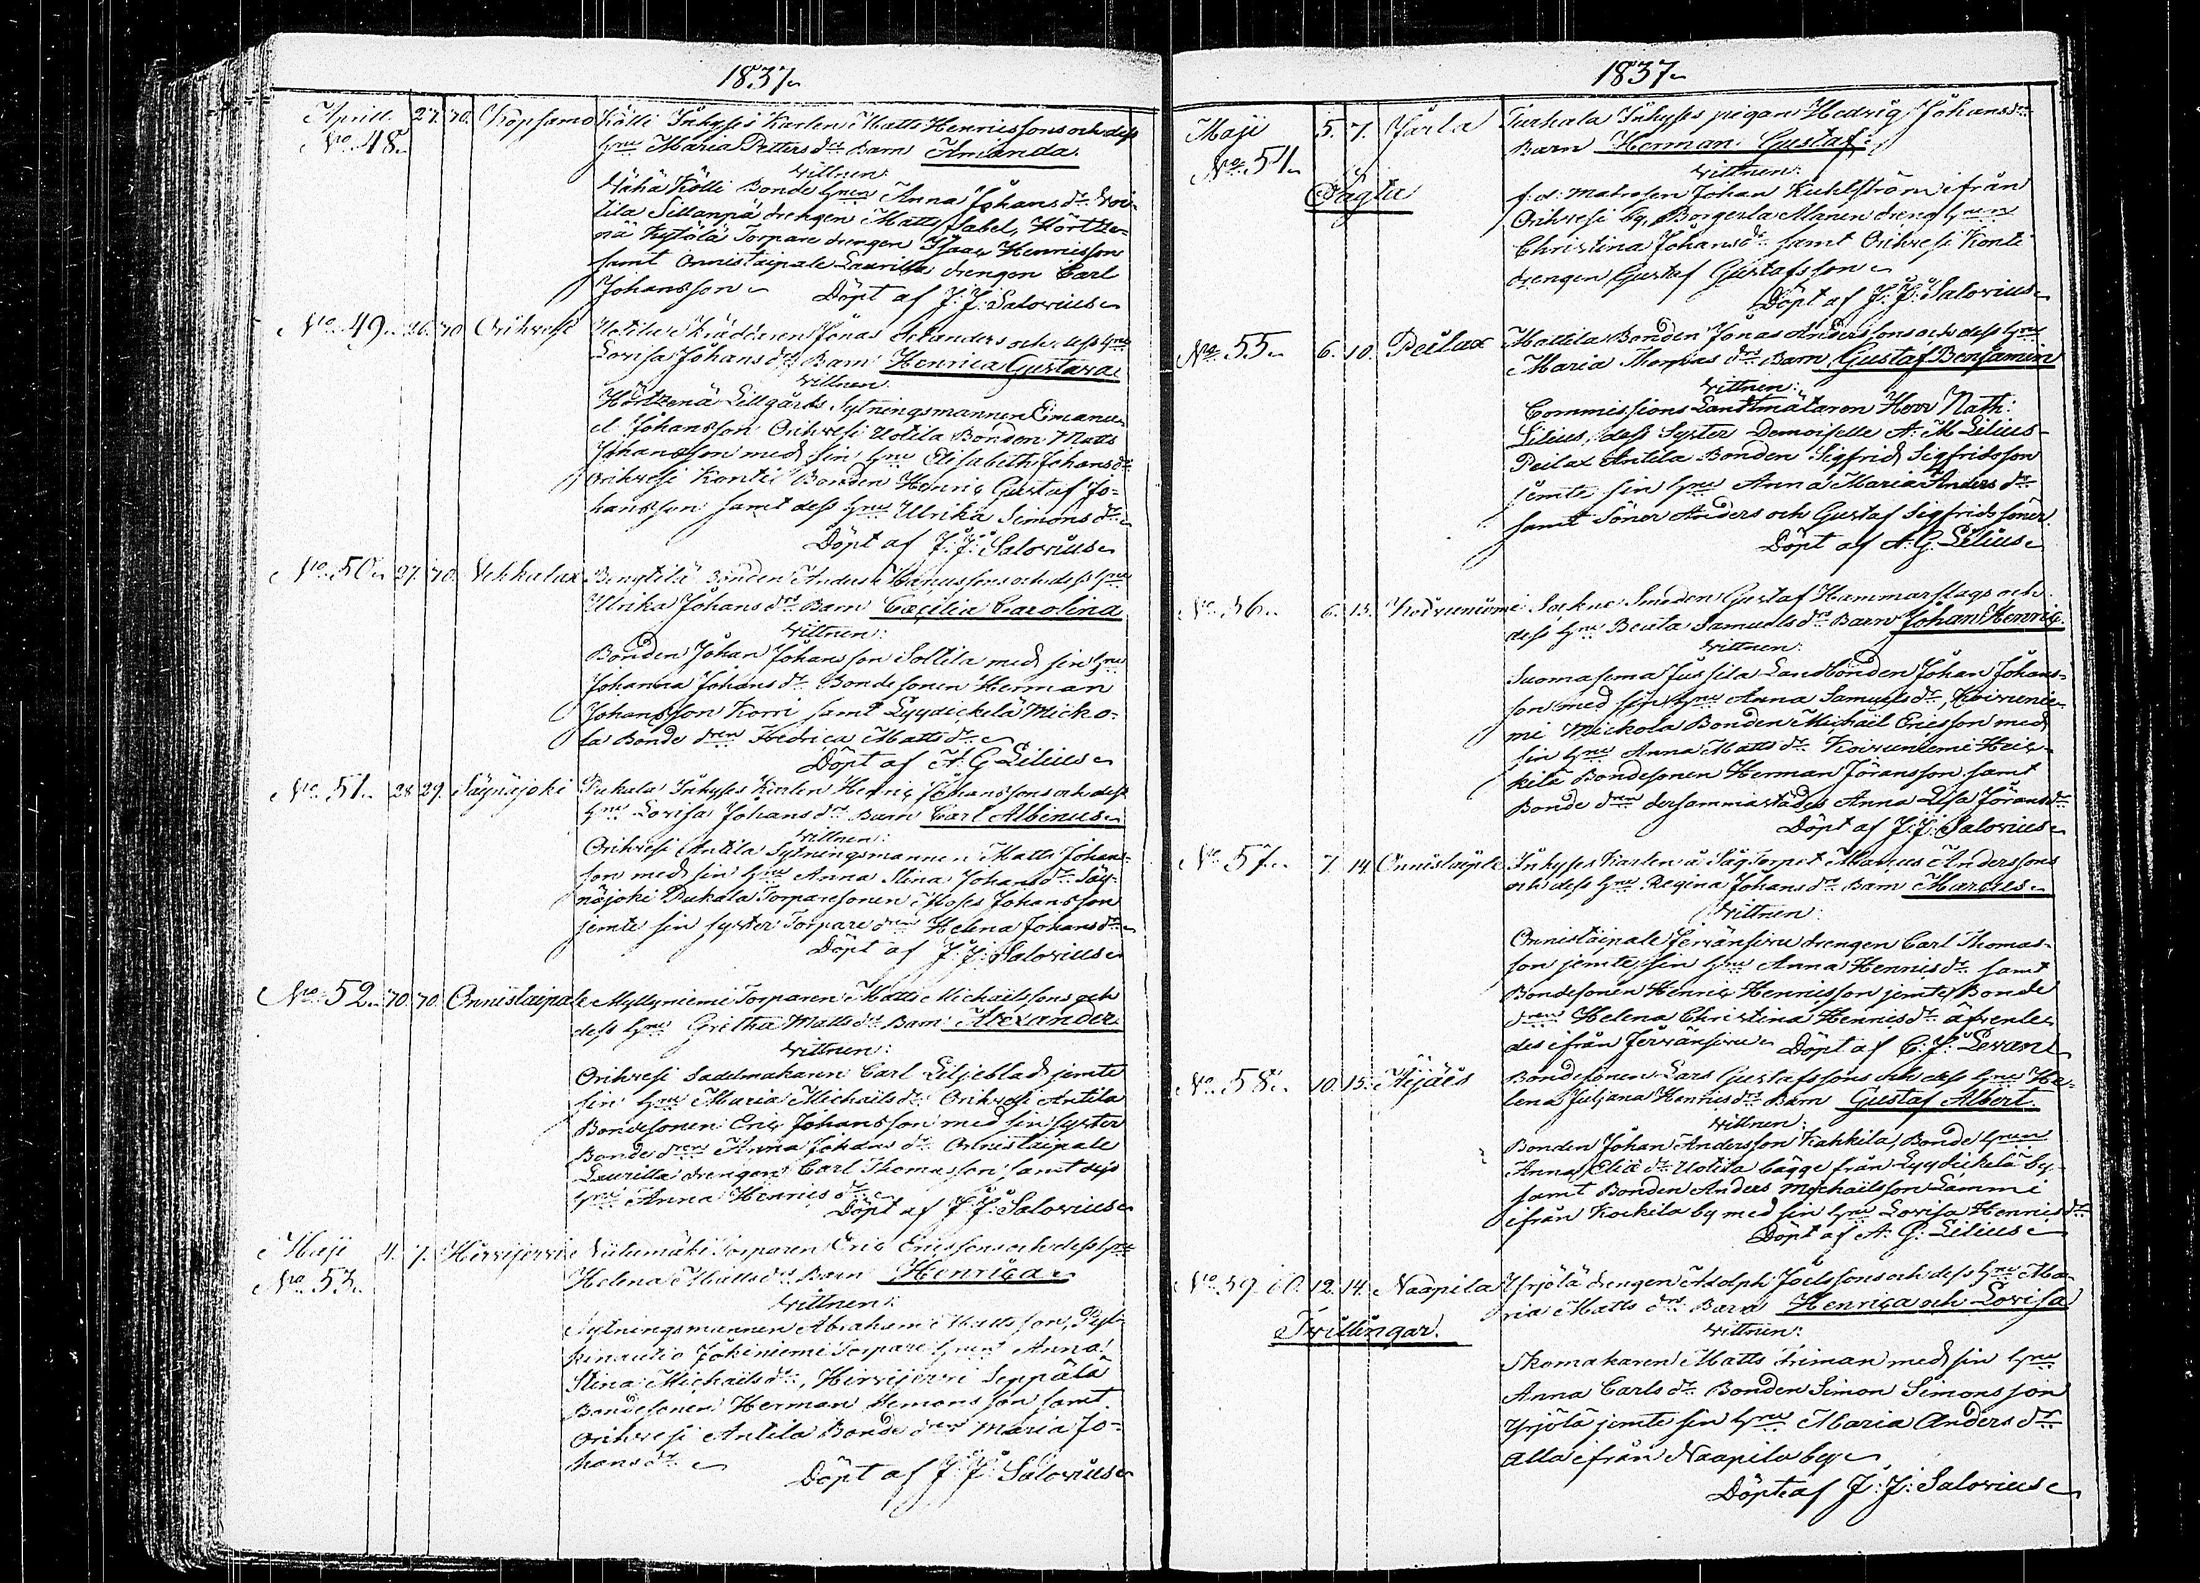 1837
Aprill. 27. 30. Köpsamo Kötti Inhyses Karlen Matts Henricssons och dess
No. 48. hru Maria Petters dr Barn Amanda.
vittnen:
Vähä Kötti Bonde hrun Anna Johans dr Voi-
tila Sillanpä drengen Matts Isabel, Körtze-
nä Kytölä Torpare drengen Isaac Henricsson
samt Onnistaipale Laurilla drengen Carl
Johansson
Döpt af J. J. Salovius
No. 49. 26. 30 Orihvesi Uotila Skräddaren Jonas Selanders och dess hru
Lovisa Johans dr Barn Henrica Gustava
vittnen
Körtzenä Lillgårds Sytningsmannen Emanu-
el Johansson Orihvesi Uotila Bonden Matts
Johansson med sin hru Elisabeth Johans dr
Orihvesi Kontti Bonden Henric Gustaf Jo-
hansson samt dess hru Ulrika Simons dr
Döpt af J. J. Salovius
No. 50. 27. 30. Vekkalax Bengtilä Bonden Anders Hanussons och dess hru
Ulrika Johans dr Barn Cæcilia Carolina
vittnen:
Bonden Johan Johansson Soltila med sin hru
Johanna Johans dr Bondesonen Herman
Johansson Korri samt Lyydickelä Micko-
la Bonde dren Hedrica Matts dr
Döpt af A. G. Lilius
No. 51. 28 29. Säynäjoki Pukala Inhyses Karlen Henric Johanssons och dess
hru Lovisa Johans dr Barn Carl Albinus
vittnen:
Orihvesi Antila Sytningsmannen Matts Johans-
son med sin hru Anna Stina Johans dr Säy-
näjoki Pukala Torparesonen Moses Johansson
jemte sin syster Torpare dren Helena Johans dr
Döpt af J. J. Salovius
No. 52. 30. 30. Onnistaipale Myllyniemi Torparen Matts Michailssons och
dess hru Gretha Matts dr Barn Alexander
vittnen:
Orihvesi Sadelmakaren Carl Liljeblad jemte
sin hru Maria Michails dr Orihvesi Antila
Bondesonen Eric Johansson med sin syster
Bonde dren Anna Johans dr Onnistaipale
Laurilla drengen Carl Thomasson samt dess
hru Anna Henrics dr
Döpt af J. J. Salovius
Maji 4. 7. Hirvijervi Niitumäki Torparen Eric Ericssons och dess hru
No. 53. Helena Matts dr Barn Henrica
vittnen:
Sytningsmannen Abraham Mattsson,
Jokiniemi Torpare hrun Anna
Stina Michails dr, Hirvijervi Seppälä
Bondesonen Herman Hemonsson samt
Orihvesi Antila Bonde dren Maria Jo-
hans dr
Döpt af J. J. Salovius
1837
Maji 5. 7. Yärla Turkala Inhyses pigan Hedvig Johans dr
No. 54. Barn Herman Gustaf:
Oägta vittnen:
f.d. Matrosen Johan Kuhlström ifrån
Orihvesi by, Borgerla Manen dreng hrun
Christina Johans dr samt Orihvesi Konti
drengen Gustaf Gustafsson
Döpt af J. J. Salovius
No. 55. 6. 10. Peilax Hottila Bonden Jonas Anderssons och dess hru
Maria Thomas dr Barn Gustaf Benjamin
vittnen:
Commissions Landtmätaren Herr Nath:
Lilius, dess Syster Demoiselle A. M. Lilius
Peilax Antila Bonden Sigfrid Sigfridsson
jemte sin hru Anna Maria Anders dr
samt Söner Anders och Gustaf Sigfrids söner
Döpt af A. G. Lilius
No. 56. 6. 15. Koivuniemi Sockne Smeden Gustaf Hammarslags och
dess hru Beata Samuels dr Barn Johan Henric
vittnen:
Suomasema Jussila Landbonden Johan Johans-
son med sin hru Anna Samuels dr, Koivunie-
mi Mickola Bonden Michail Ericsson med
sin hru Anna Matts dr Koivuniemi Heic-
kilä Bondesonen Herman Jöransson samt
Bonde dren dersammastädes Anna Lisa Jörans dr
Döpt af J. J. Salovius
No. 57. 7. 14. Onnistaipale Inhyses Karlen å Såg Torpet Manus Anderssons
och dess hru Regina Johans dr Barn Marcus
vittnen:
Onnistaipale Jervänsivu drengen Carl Thomas-
son jemte sin hru Anna Henrics dr samt
Bondesonen Henric Henricsson jemte Bonde
dren Helena Christina Henrics dr äfvenle-
des ifrån Jervänsivu Döpt af C. J. Levan
No. 58. 10. 15. Äijäis Bondesonen Lars Gustafssons och dess hru He-
lena Juljana Henrics dr Barn Gustaf Albert
vittnen:
Bonden Johan Andersson Kahkila, Bonde hrun
Anna Eliæ dr Uotila bägge från Lyydickelä by
samt Bonden Anders Michailsson Lammi
ifrån Kockila by med sin hru Lovisa Henrics dr
Döpt af A. G. Lilius
No. 59. 60. 12. 14. Naapila Yrjölä drengen Adolph Joelssons och dess hru Ma-
ria Matts dr Barn Henrica och Lovisa
Twillingar. vittnen:
Skomakaren Matts Friman med sin hru
Anna Carls dr Bonden Simon Simonsson
Yrjölä jemte sin hru Maria Anders dr
alla ifrån Naapila by
Döpt af J. J. Salovius